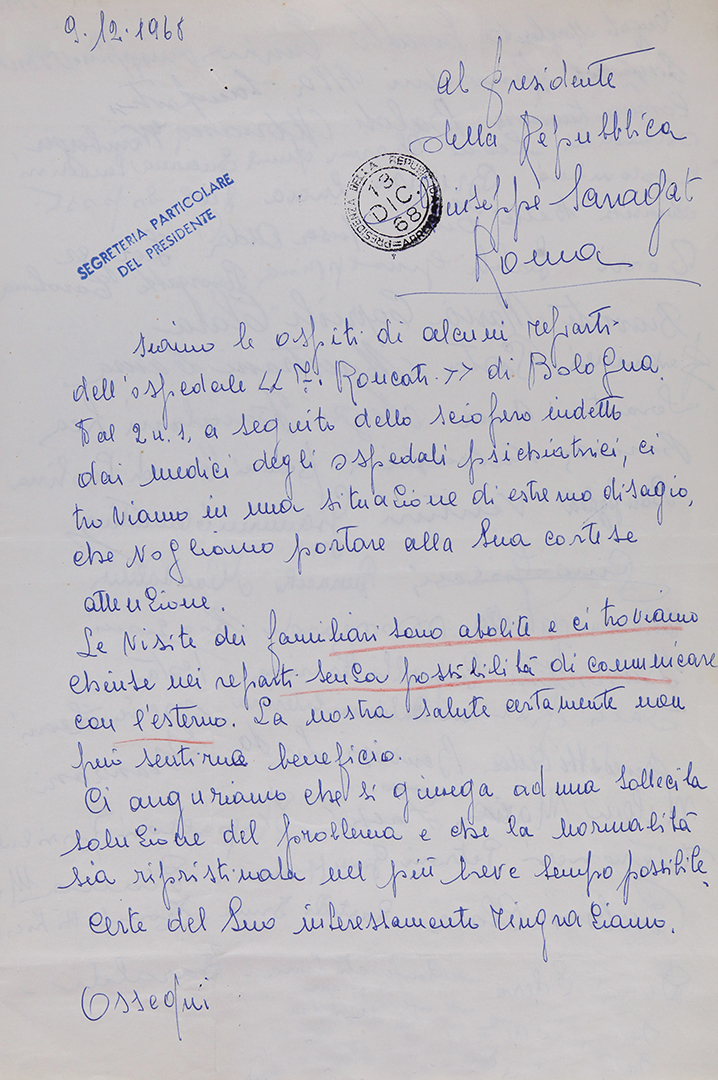 9.12.1968
Al Presidente
della Repubblica
Giuseppe Saragat
Roma
PRESIDENZA DELLA REPUBBLICA
13
DIC.
68
SEGRETERIA PARTICOLARE
DEL PRESIDENTE
Siamo le ospiti di alcuni reparti
dell'ospedale << F. Roncati >> di Bologna.
Dal 2 u.s, a seguito dello sciopero indetto
dai medici degli ospedali psichiatrici, ci
troviamo in una situazione di estremo disagio,
che vogliamo portare alla Sua cortese
attenzione.
Le visite dei familiari sono abolite e ci troviamo
chiuse nei reparti senza possibilità di comunicare
con l'esterno. La nostra salute certamente non
può sentirne beneficio.
Ci auguriamo che si giunga ad una sollecita
soluzione del problema e che la normalità
sia ripristinata nel più breve tempo possibile,
Certe del Suo interessamento ringraziamo.
Ossequi